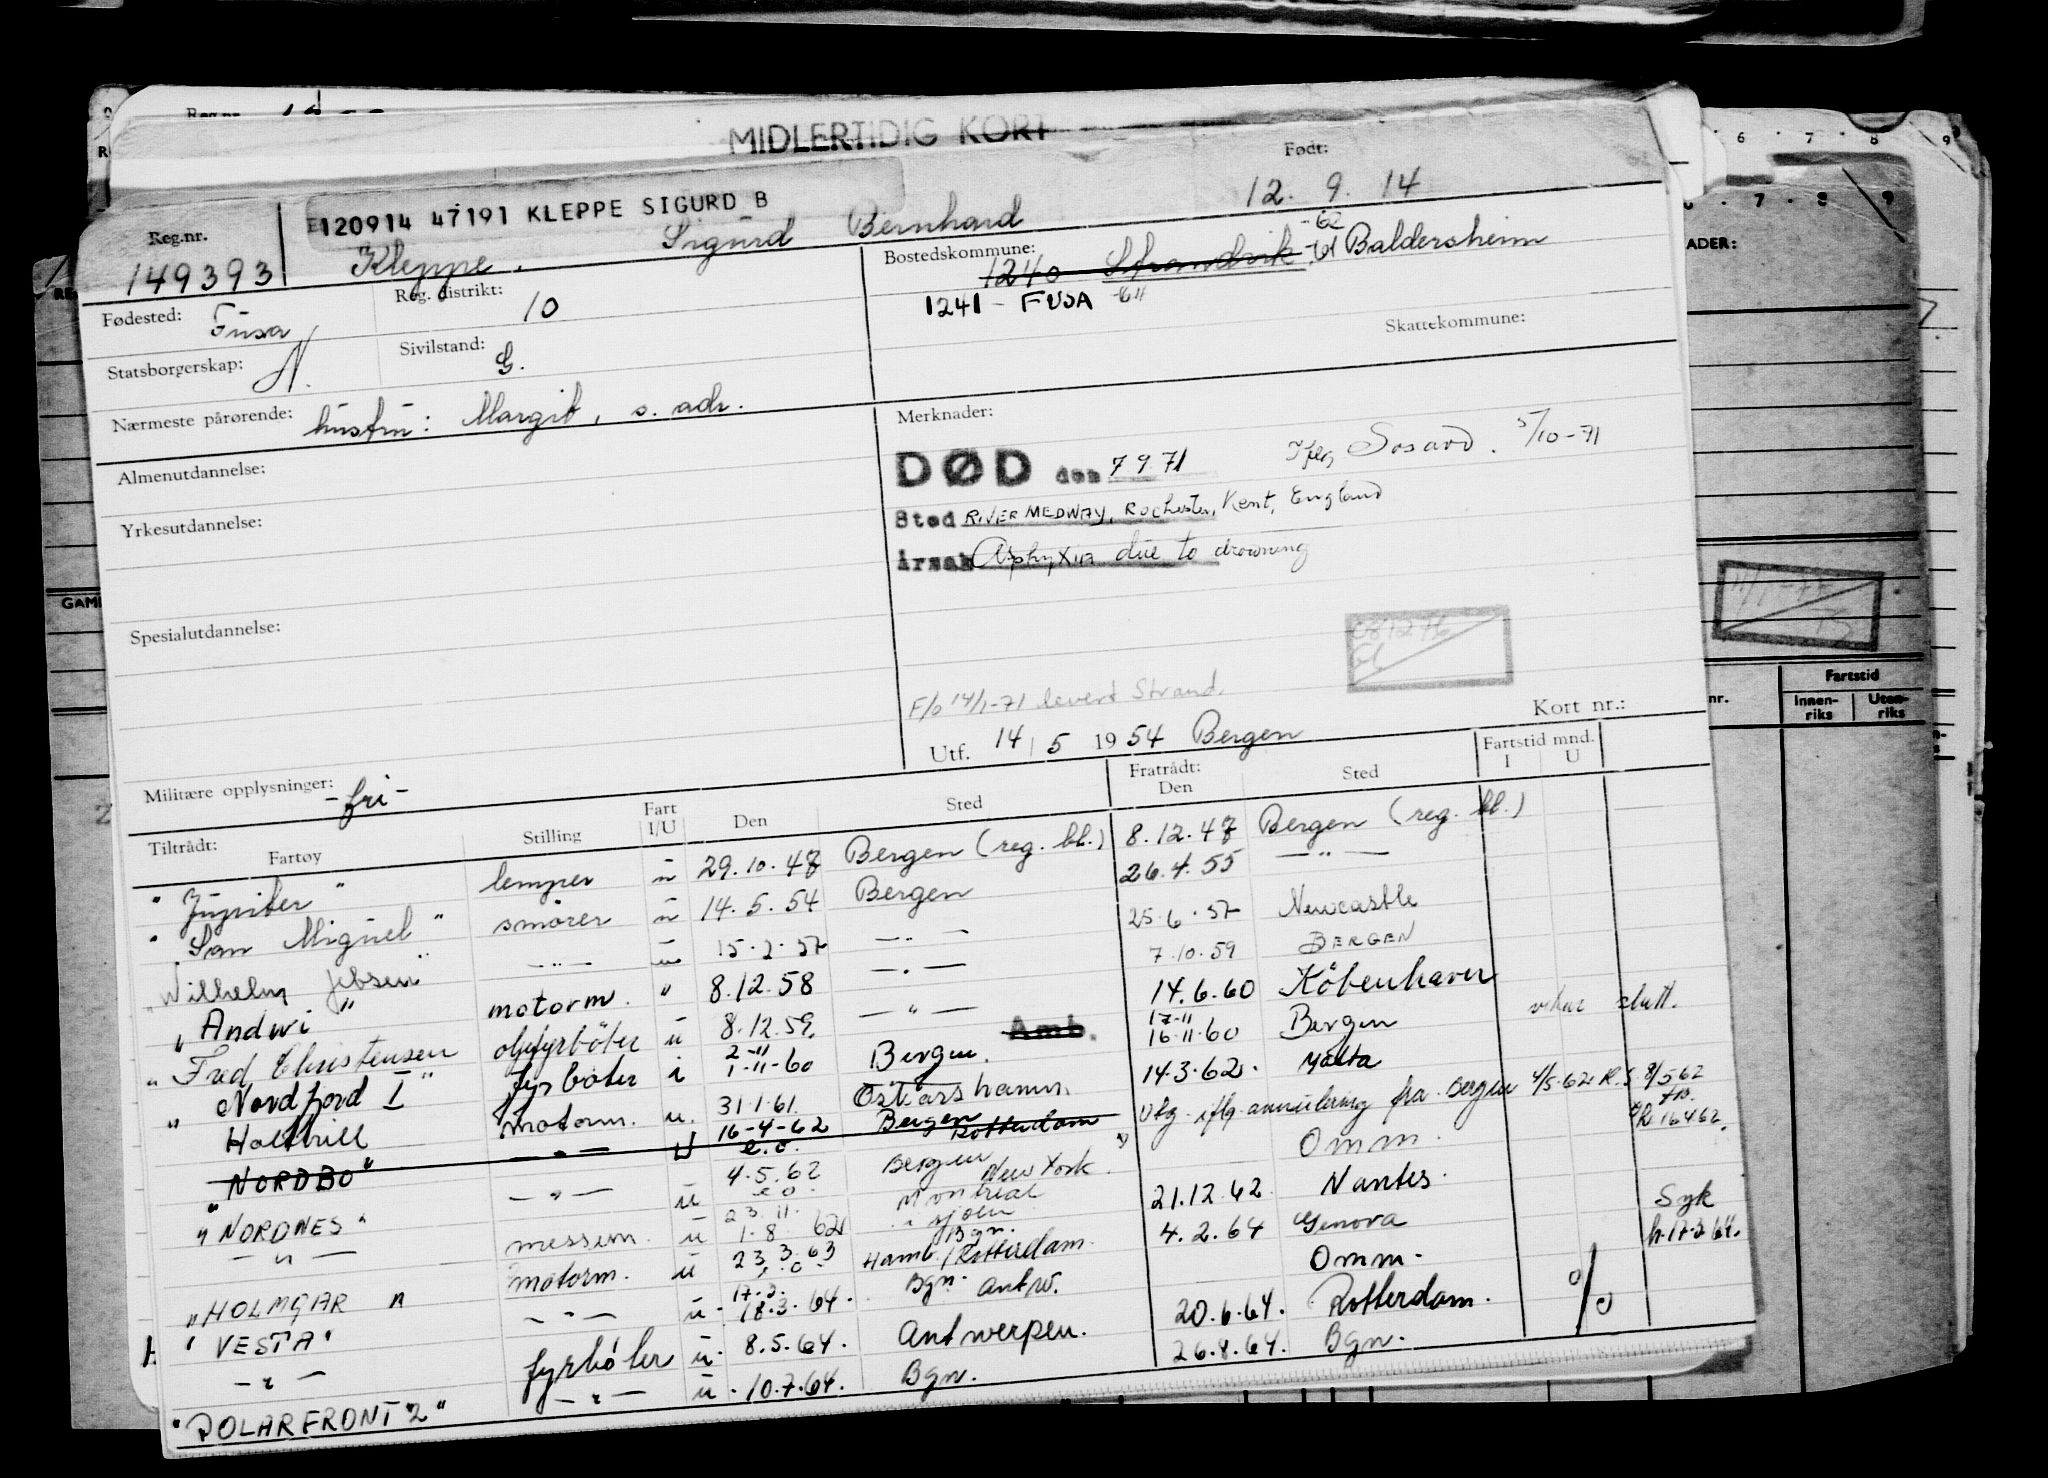 MIDLERTIDIG KORT
Født:
12. 9. 14
120914 47191 KLEPPE SIGURD B
Reg.nr.
149393
Kleppe, Sigurd Bernhard
Bostedskommune:
1240 Strandvik -61 -62 Baldersheim
1241 - FUSA -64
Fødested: Fusa
Reg. distrikt: 10
Skattekommune:
Statsborgerskap: N.
Sivilstand: G.
Nærmeste pårørende: hustru: Margit, s. adr.
Merknader:
DØD den 7 9 71 Iflg Sosavd. 5/10-71
Sted RIVER MEDWAY, Rochester, Kent, England
Årsak Asphyxia due to drowning
Almenutdannelse:
Yrkesutdannelse:
Spesialutdannelse:
F/b 14/1-71 levert Strand.
Utf. 14 / 5 1954 Bergen
Kort nr.:
Militære opplysninger: -fri-
Tiltrådt:
Fartøy Stilling Fart I/U Den Sted Fratrådt: Den Sted Fartstid mnd. I U
"Jupiter" lemper u 29.10.47 Bergen (reg. bl.) 8.12.47 Bergen (reg. bl.)
"San Miguel" smører u 14.5.54 Bergen 26.4.55 — " —
"Wilhelm Jebsen" — " — " 15.2.57 — " — 25.6.57 Newcastle
"Andwi" motorm. " 8.12.58 — " — 7.10.59 BERGEN
"Fred Christensen oljefyrbøter u 8.12.59. — " — Amb. 14.6.60 København
"Nordfjord I" fyrbøter i 2-11 1-11-60 Bergen. 17-11 16-11-60 Bergen vikar slutt.
" Holthill motorm. u. 31.1.61. Oskarshamn 14.3.62. Malta
"NORDBO" — " — U 16-4-62 e.o. Bergen Rotterdam Utg. iflg. annullering fra Bergen 4/5-62 R.S. 8/5 62
"NORDNES" — " — u 4.5.62 e o. Bergen New York Omm.
— " — messem. u 23.11. 1.8 62 Montreal 21.12.62 Nantes.
"HOLMGAR" motorm. u 23.3.63 Bgn. Hamb./Rotterdam. 4.2.64 Genova Syk h.17-2 64.
"VESTA" — " — u. 17.3. 18.3.64. Bgn. Antw. Omm.
— " — fyrbøter u. 8.5.64. Antwerpen. 20.6.64. Rotterdam.
"POLARFRONT 2" — " — u. 10.7.64. Bgn. 26.8.64. Bgn.
6 7 8 9
ADER:
GAM
nr.
Fartstid
Innen-riks
Uten-riks